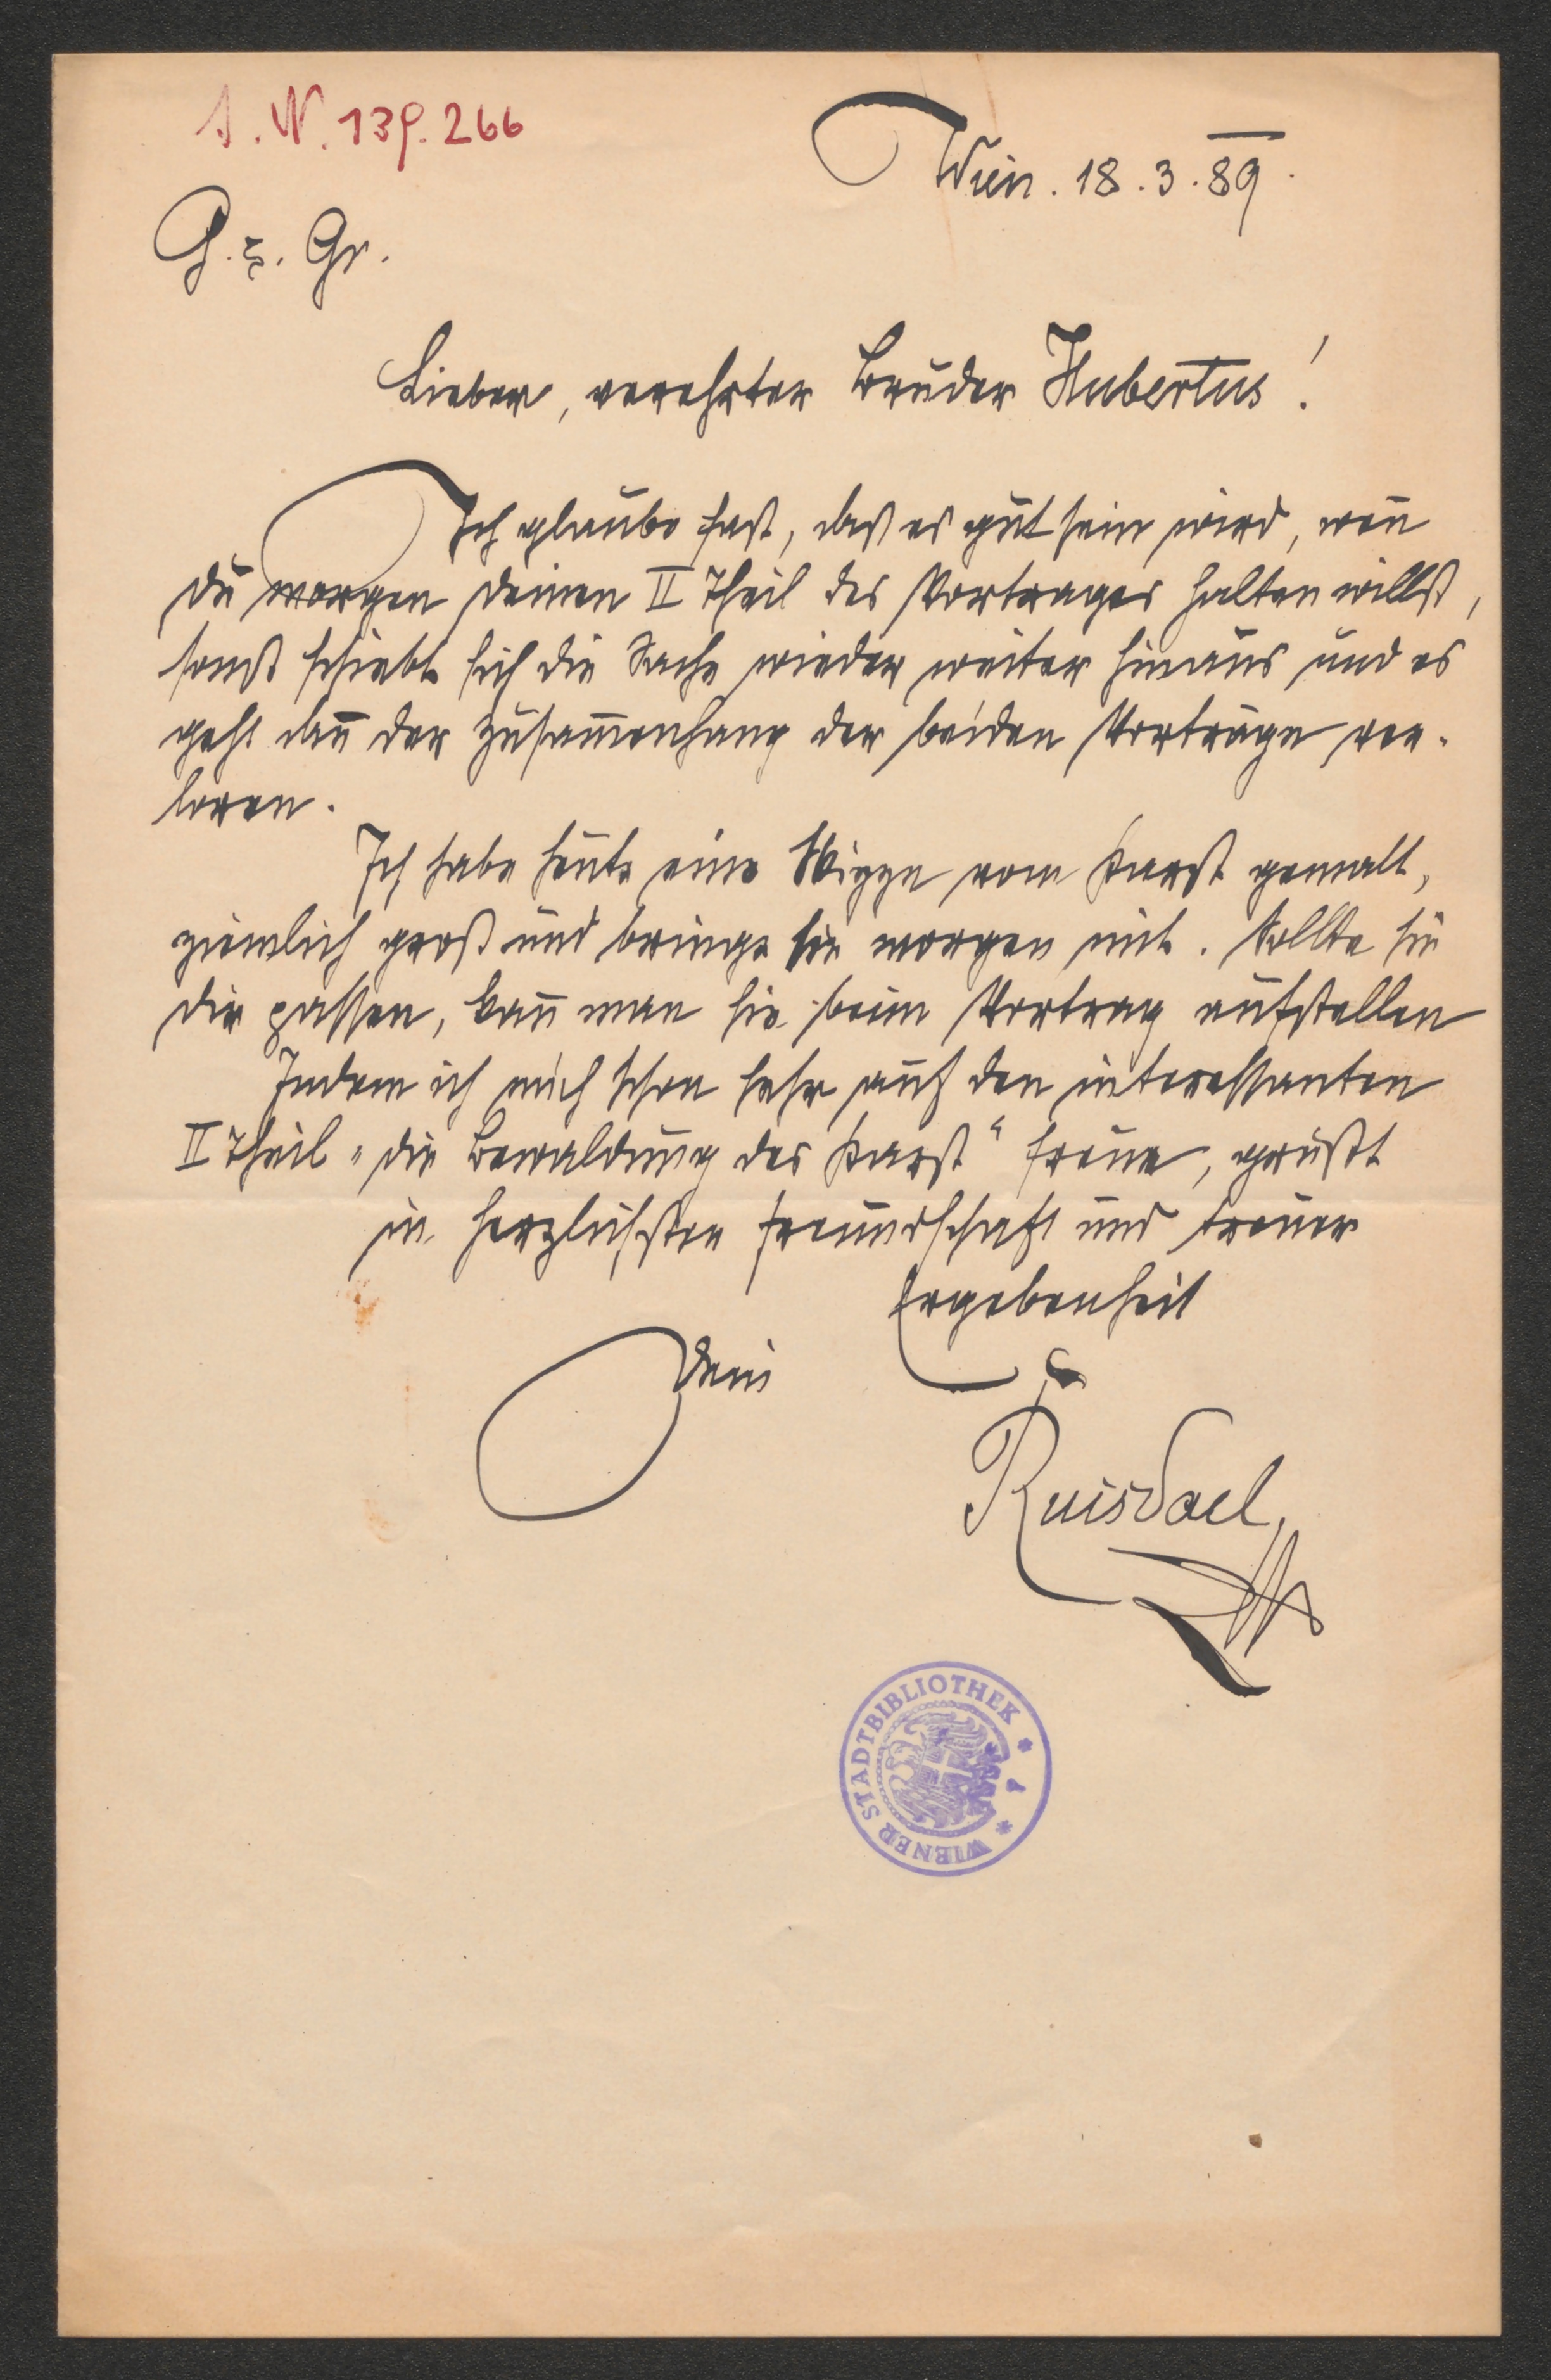 I.N. 139.266
Wien. 18.3.89.
G. z. Gr.
Lieber, verehrter Bruder Hubertus!
Ich glaube fast, daß es gut sein wird, weñ
du morgen deinen II Theil des Vortrages halten willst,
sonst schiebt sich die Sache wieder weiter hinaus und es
geht dañ der Zusam̄enhang der beiden Vorträge ver-
loren.
Ich habe heute eine Skizze vom Karst gemalt,
ziemlich groß und bringe sie morgen mit. Sollte sie
dir passen, kañ man sie beim Vortrag aufstellen
Indem ich mich schon sehr auf den interessanten
II Theil „die Bewaldung des Karst“ freue, grüßt
in herzlichster Freundschaft und treuer
Ergebenheit
Dein
Ruisdael
WIENER STADTBIBLIOTHEK